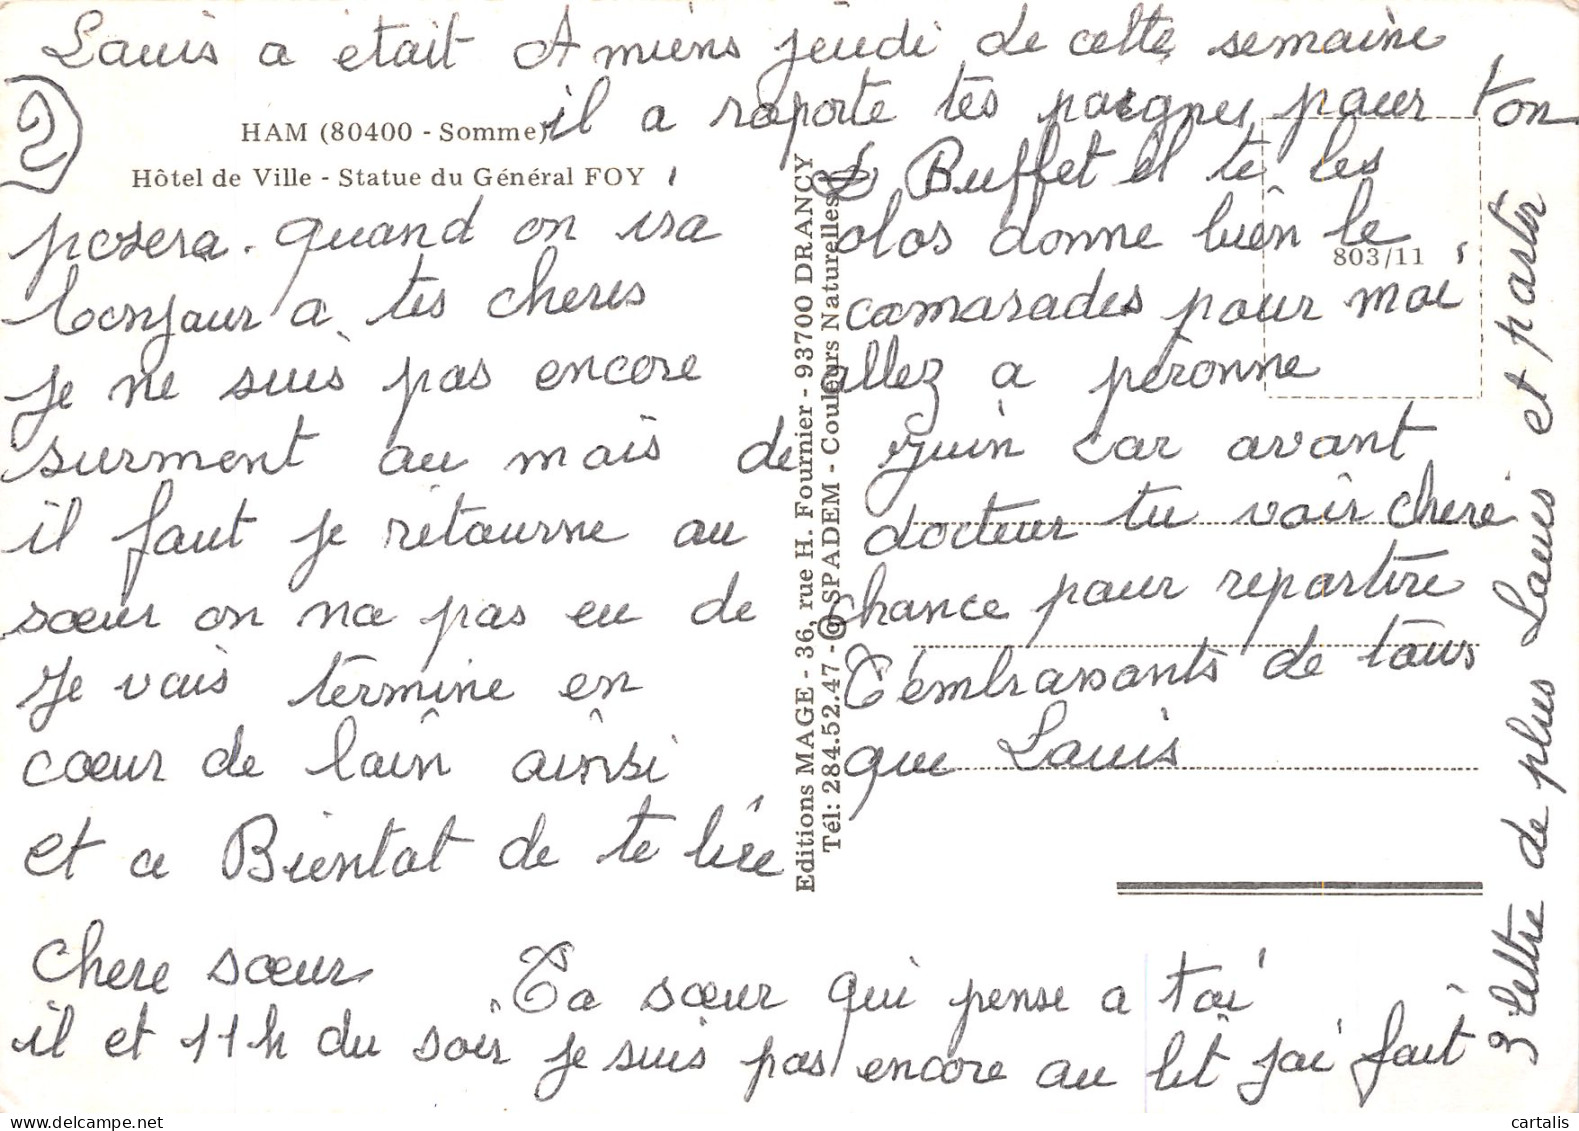 Louis a était A miens jeudi de cette semaine
il a raporte tes poignes pour ton
2
HAM (80400 - Somme)
Hôtel de Ville - Statue du Général FOY
Buffet il te les
posera. quand on ira olos donne bien le
803/11
bonjour a tes cheres camarades pour moi
je ne suis pas encore allez a péronne
surment au mois de juin car avant
il faut je retourne au docteur tu voir chere
sœur on na pas eu de chance pour repartire
Je vais termine en T'embrassants de tous
cœur de loin ainsi que Louis
et a Bientot de te lire
Chere sœur Ta sœur qui pense a toi
il et 11h du soir je suis pas encore au lit jai fait
3 lettre de plus Louis et partir
Editions MAGE - 36, rue H. Fournier - 93700 DRANCY
Tél: 284.52.47 - © SPADEM - Couleurs Naturelles
cartalis